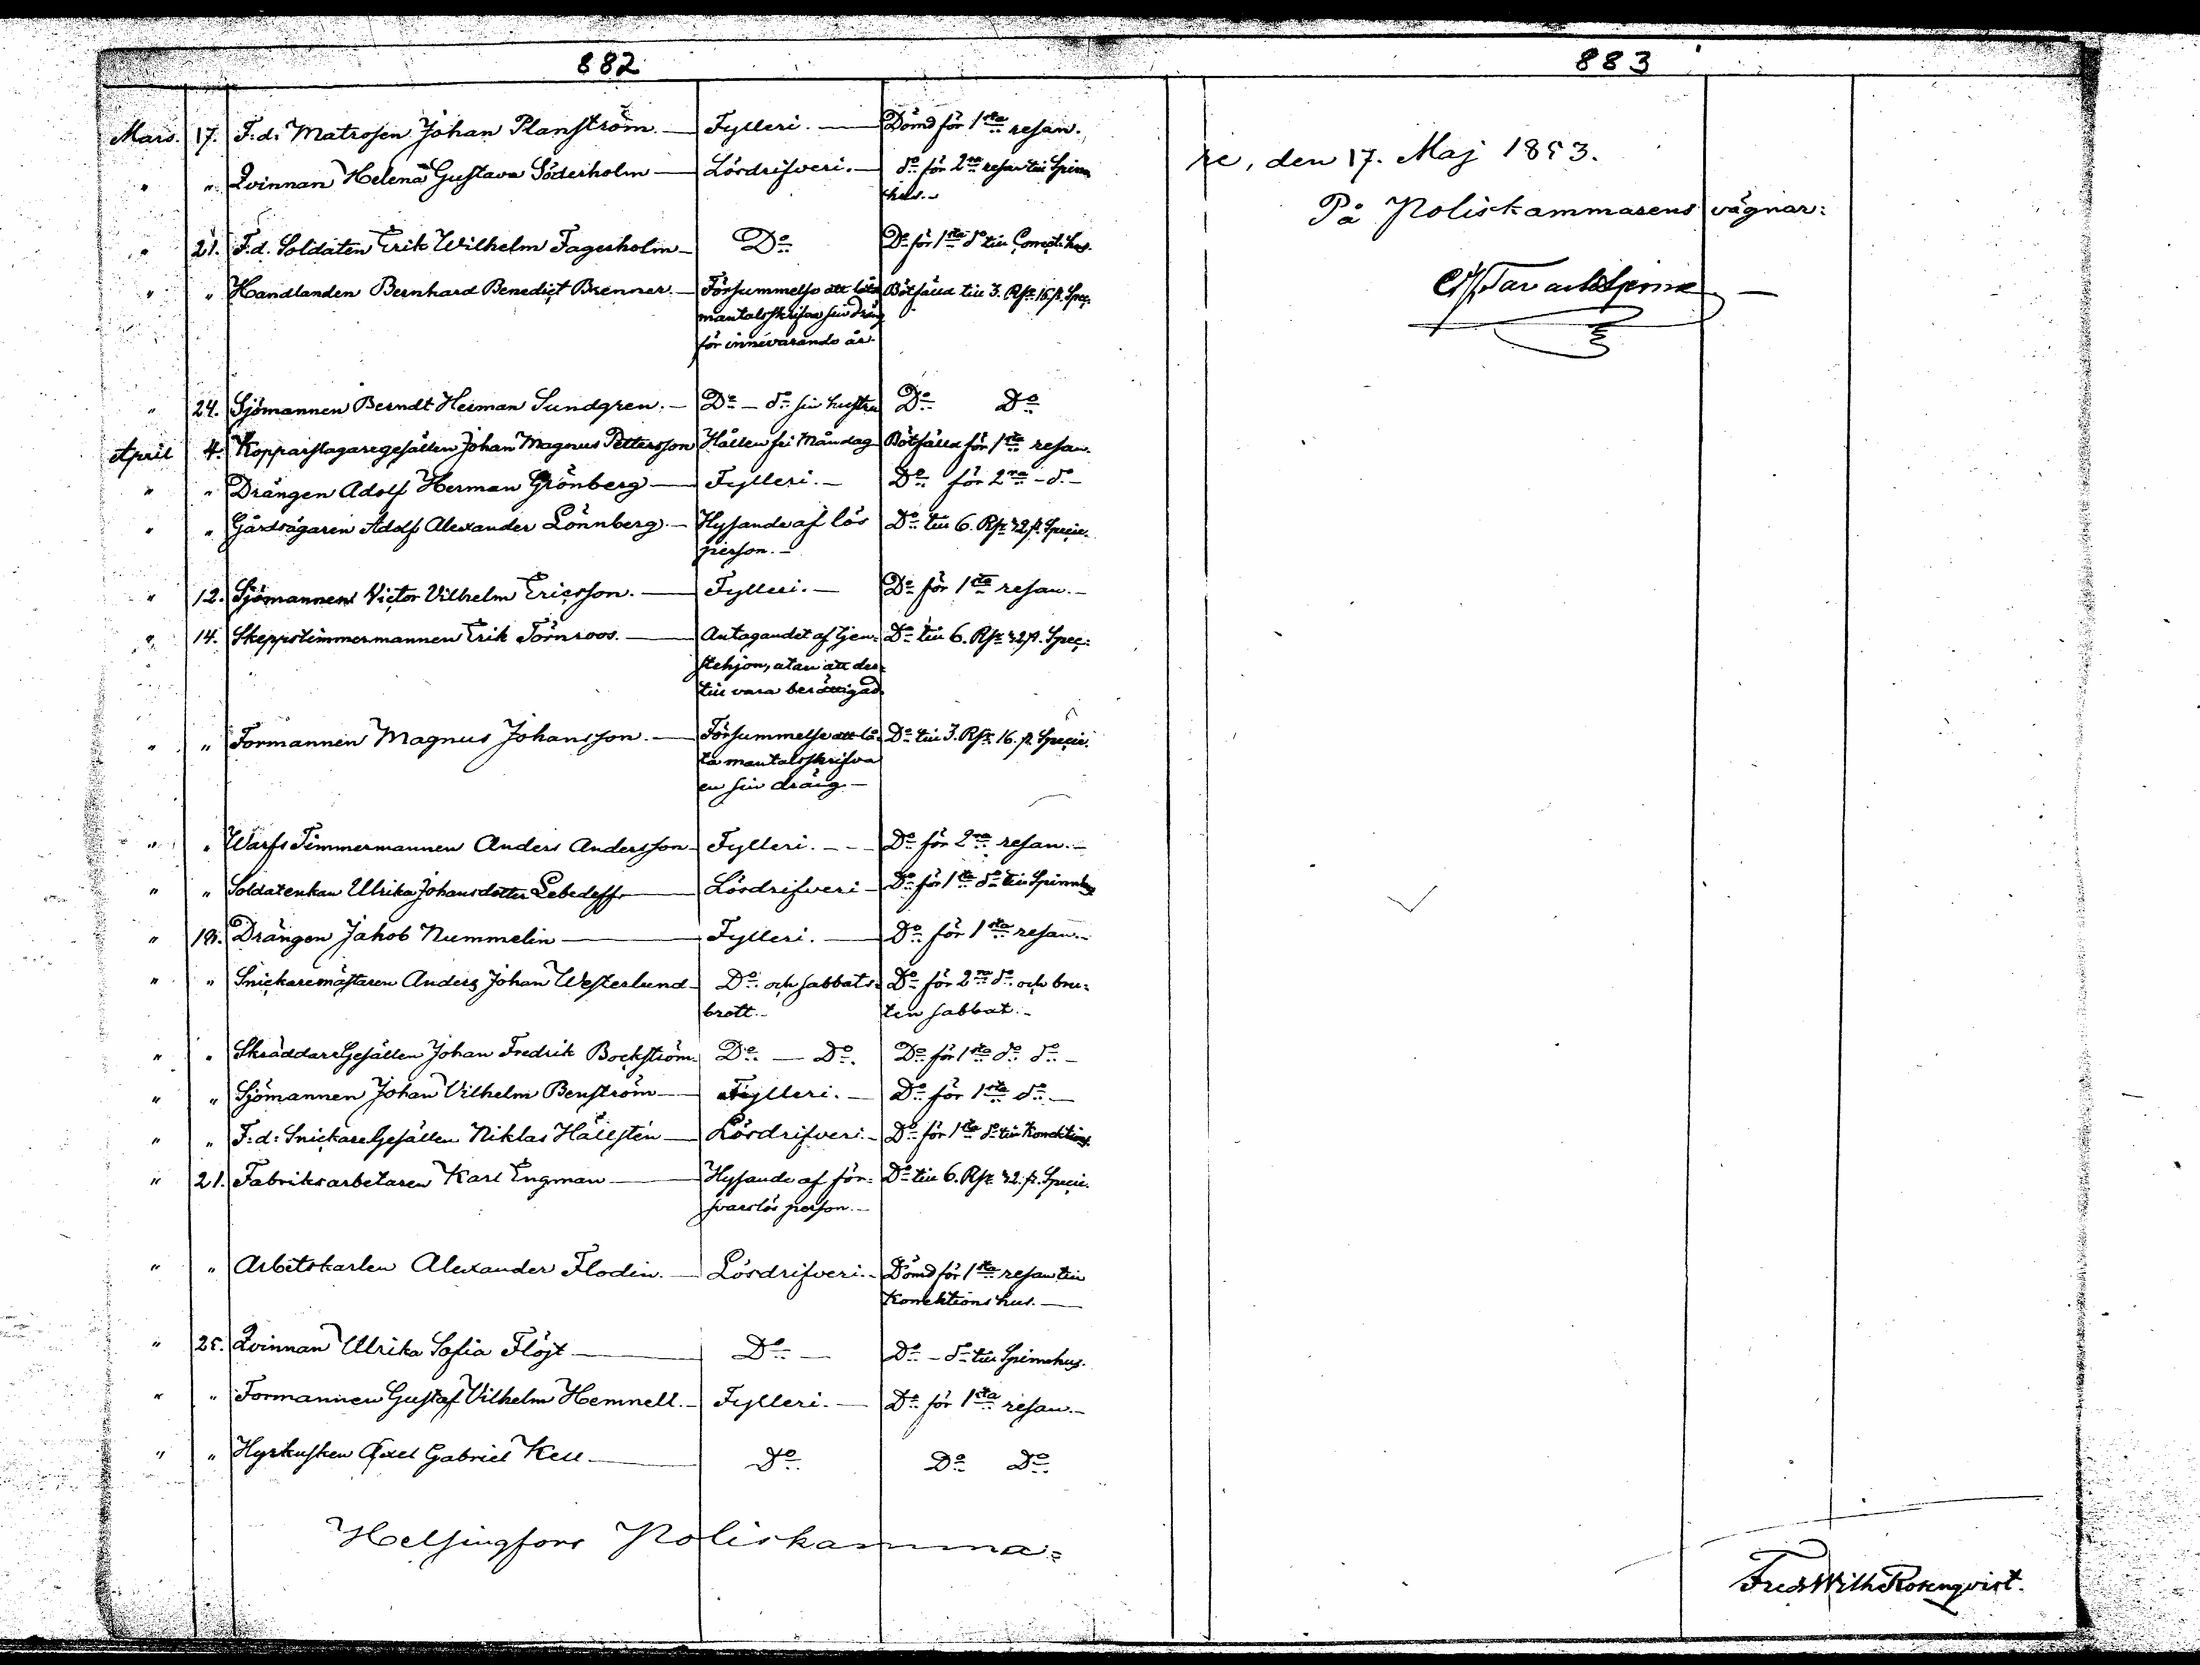 882
Mars. 17. F: d: Matrosen Johan Planström. — Fylleri. — Dömd för 1sta resan.
" " Qvinnan Helena Gustava Söderholm — Lösdrifveri. — do för 2ra resan till Spinn
hus. -
" 21. F. d. Soldaten Erik Wilhelm Fagerholm - Do Do för 1sta do till Correct: hus.
" " Handlanden Bernhard Benedict Brenner. — Försummelse att låta Bötfälld till 3. Rbr 16 k. Spec:
mantalsskrifva sin dräng
för innevarande år.
" 24. Sjömannen Berndt Herman Sundgren. — Do - do sin hustru Do Do
April 4. Kopparslagaregesällen Johan Magnus Pettersson Hållen fri Måndag Bötfälld för 1sta resan.
" " Drängen Adolf Herman Grönberg — Fylleri. — Do för 2ra - do -
" " Gårdsägaren Adolf Alexander Lönnberg. — Hysande af lös Do till 6. Rbr 32 k. Specie.
person. -
" 12. Sjömannen Victor Vilhelm Ericsson. — Fylleri. — Do för 1sta resan. -
" 14. Skeppstimmermannen Erik Törnroos. — Antagandet af tjen= Do till 6. Rbr 32 k. Spec:
stehjon, utan att der=
till vara berättigad.
" " Formannen Magnus Johansson. — Försummelse att lå= Do till 3. Rbr 16. k. Specie.
ta mantalsskrifva
en sin dräng. -
" " Warfs Timmermannen Anders Andersson - Fylleri. - - Do för 2ra resan. -
" " Soldatenkan Ulrika Johansdotter Lebedeff — Lösdrifveri - Do för 1sta do till Spinnhus
" 18. Drängen Jakob Nummelin — Fylleri. — Do för 1sta resan. -
" " Snickaremästaren Anders Johan Westerlund - Do och sabbats= Do för 2ra do och bru=
brott. - ten sabbat. -
" " Skräddare Gesällen Johan Fredrik Bockström. Do — Do. Do för 1sta do do -
" " Sjömannen Johan Vilhelm Benström — Fylleri. — Do för 1sta do —
" " F: d: Snickare Gesällen Niklas Hällsten — Lösdrifveri. - Do för 1sta do till Korrektions.
" 21. Fabriksarbetaren Karl Engman — Hysande af för= Do till 6. Rbr 32. k. Specie.
svarslös person. -
" " Arbetskarlen Alexander Flodin. — Lösdrifveri. - Dömd för 1sta resan till
Korrektionshus. —
" 25. Qvinnan Ulrika Sofia Flöjt — Do — Do - do till Spinnhus.
" " Formannen Gustaf Vilhelm Hemnell. - Fylleri. — Do för 1sta resan. -
" " Hyrkusken Axel Gabriel Kell — Do Do Do
Helsingfors Poliskamma=
883
re, den 17. Maj 1853.
På Poliskammarens vägnar:
Fredr Wilh Rosenqvist.